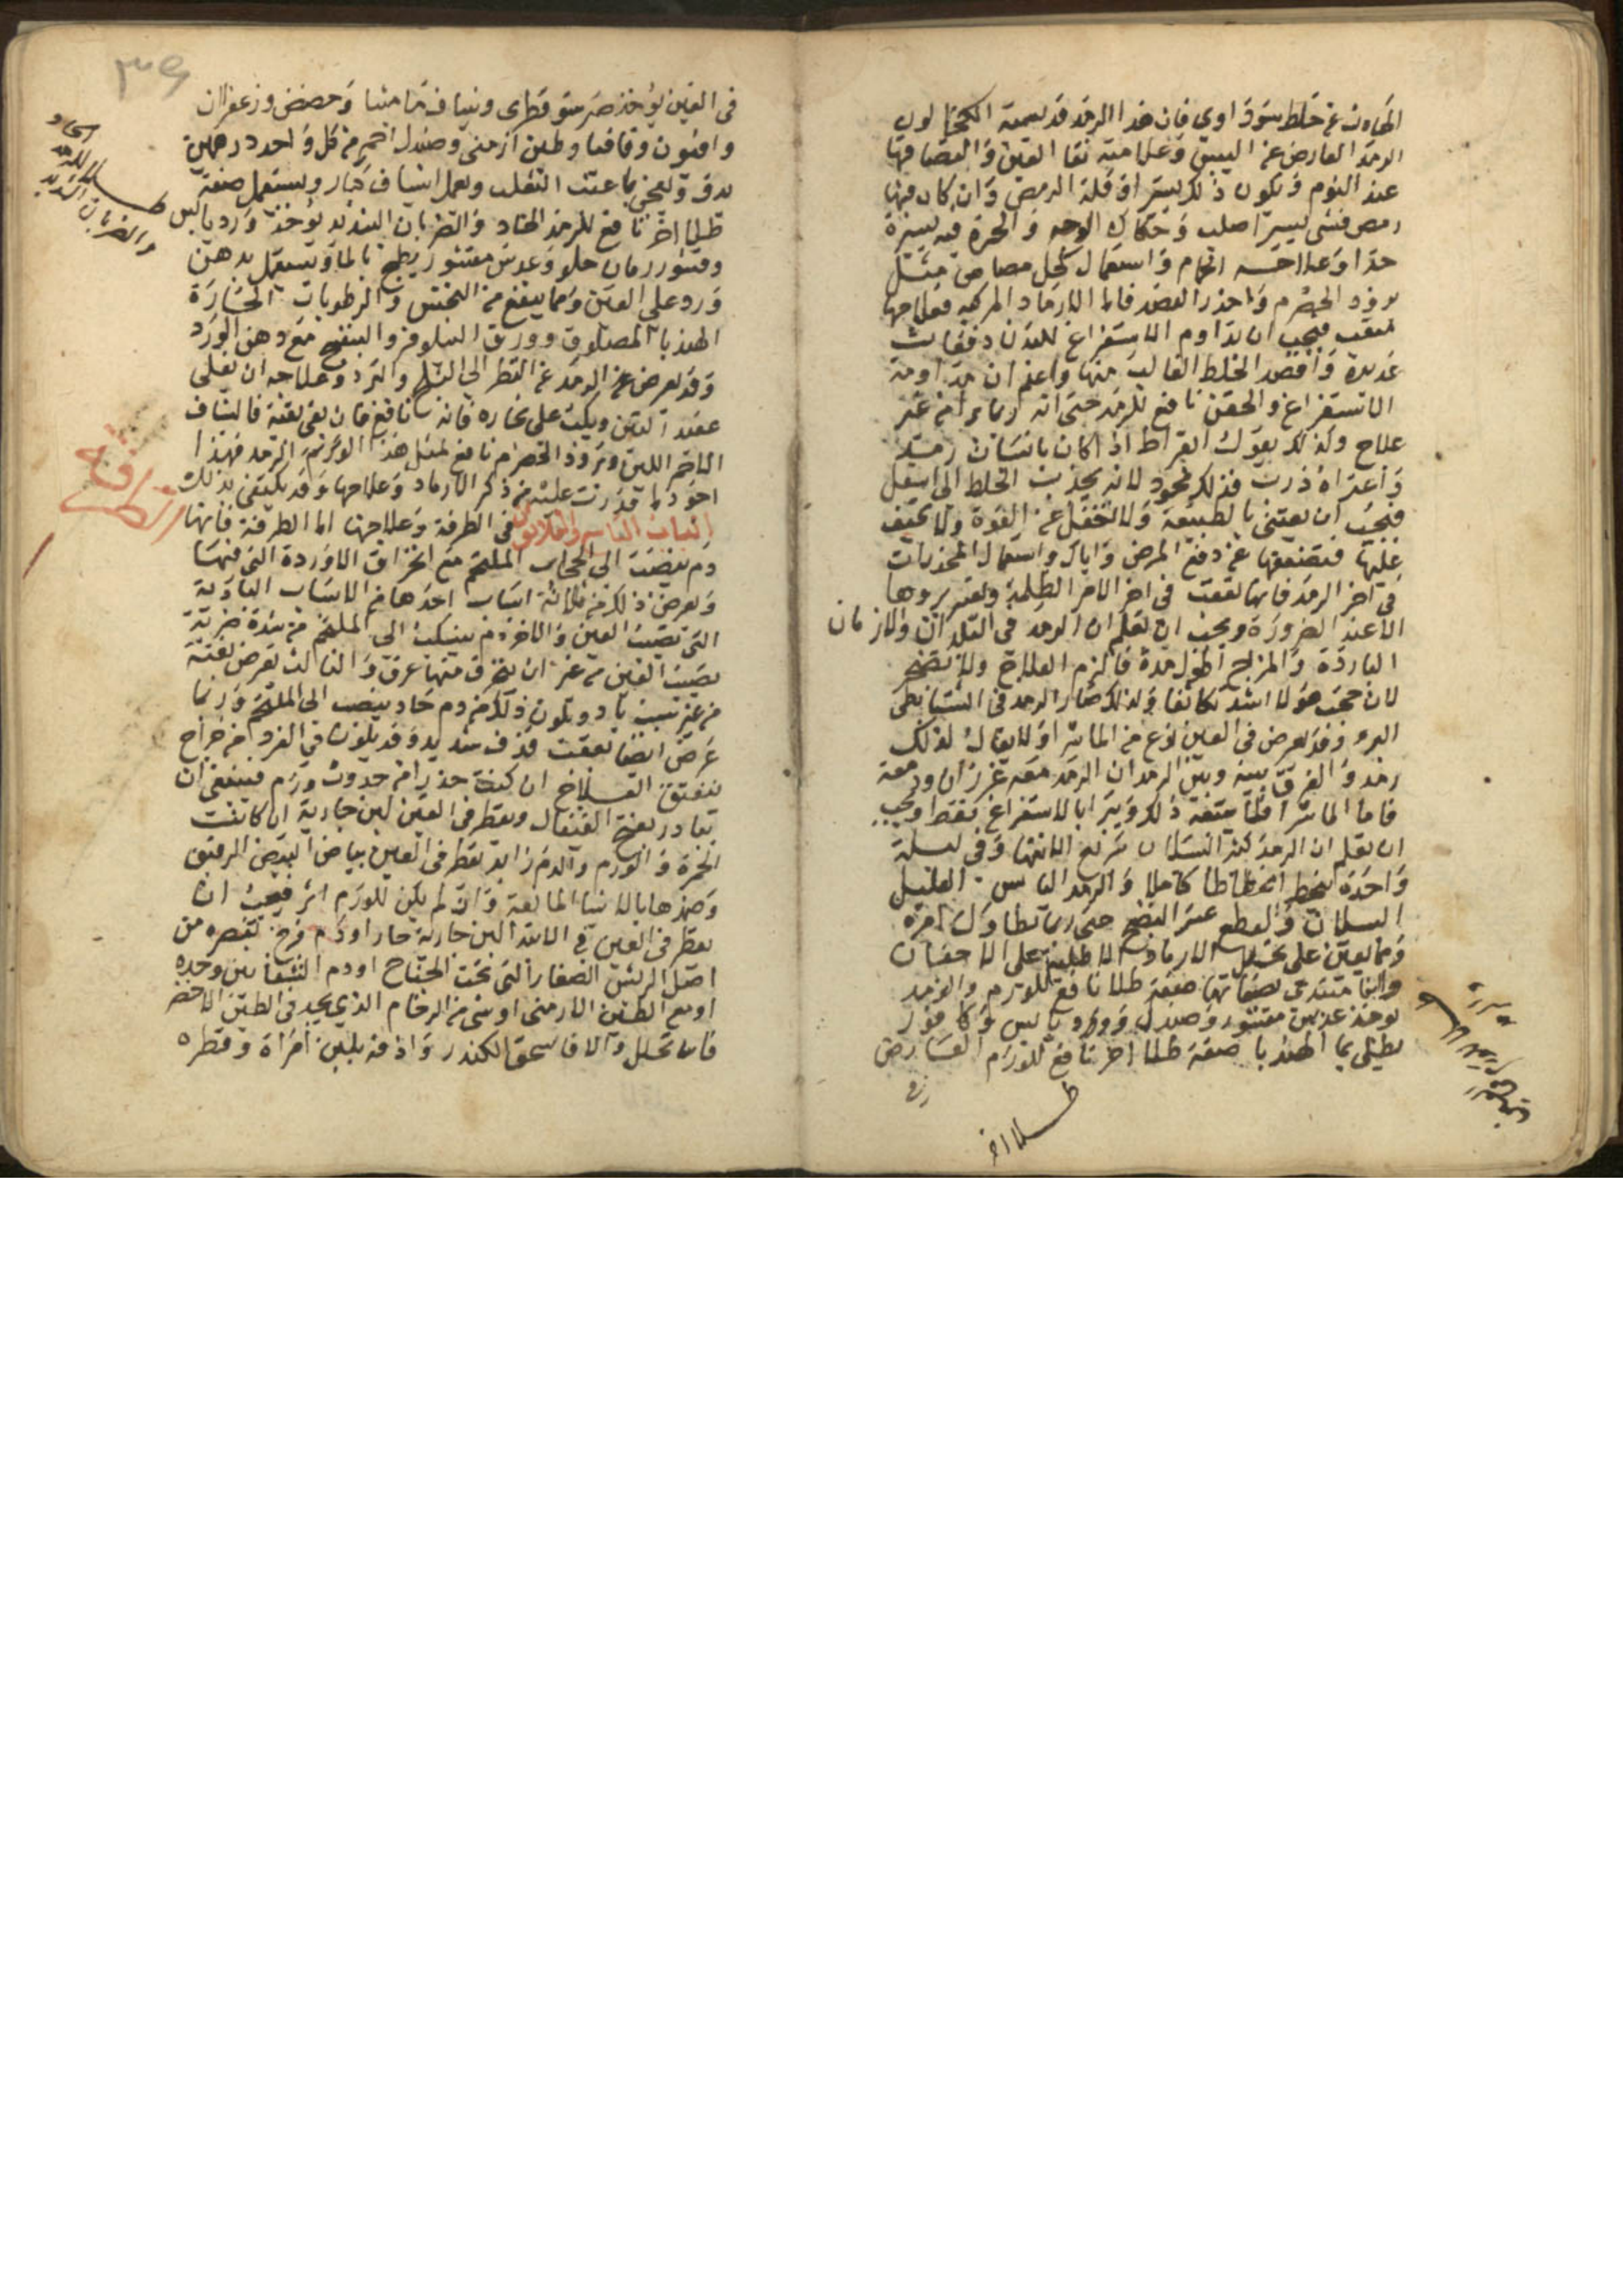 الحادث عن خلط سوداوي فان هذا الرمد قد يسميه الكحالون
الرمد العارض عن اليبس وعلامته نقا العين والتصاقها
عند النوم ويكون ذلك يسير او قلة الرمص وان كان فيها
رمص فشي يسير اصلب وحكاك الوجه والحمرة فيه يسيرة
جدا وعلاجه الحمام واستعمال كحل مصامى مثل
برود الحصرم واحذر الفصد فاما الارماد المركبه فعلاجها
متعب فيجب ان تداوم الاستفراغ للبدن دفعات
عديدة واقصد الخلط الغالب منها واعلم ان مداومة
الاستفراغ والحقن نافع للرمد حتى انه ربما برا من غير
علاج ولذلك يقول ابقراط اذا كان بانسان رمد
واعتراه ذرب فذلك محمود لانه يجذب الخلط الى اسفل
فيجب ان تعتني بالطبيعة ولا تغفل عن القوة ولا تحيف
عليها فتضعفها عن دفع المرض واياك واستعمال المخدرات
في اخر الرمد فانها تعقب في اخر الامر الظلمة ويعسر بروها
الا عند الضرورة ويجب ان تعلم ان الرمد في البلدان والازمان
الباردة والمزاج اطول مدة فالزم العلاج ولا تضجر
لان حجب هولا اشد تكاثفا ولذلك صار الرمد في الشتا بطي
البرو وقد يعرض في العين نوع من الماشرا ولا يقال لذلك
رمد والفرق بينه وبين الرمد ان الرمد معه غرزان ودمعة
فاما الماشرا فلا يتبعه ذلك ويبرا بالاستفراغ فقط ويجب
ان تعلم ان الرمد كثير السيلان سريع الانتها وفي ليلة
واحدة ينحط انحطاطا كاملا والرمد اليابس القليل
السيلان والقطع عسر النضج حتى ربما تطاول امره
ومما يعين على تحليل الارماد الاطلية على الاجفان
وانا مبتدي بصفاتها صفة طلا نافع للورم والرمد
يوخذ عدس مقشور وصندل وورد يابس وكافور
يطلى بما الهندبا صفة طلا اخر نافع للورم العارض
طلا اخر
في العين يوخذ صبر سقوطرى وشياف ماميثا وحضض وزعفران
وافيون وقاقيا وطين ارمني وصندل احمر من كل واحد درهمين
يدق ويعجن بما عنب الثعلب ويعمل اشياف كبار ويستعمل صفة
طلا اخر نافع للرمد الحاد والضربان الشديد يوخذ ورد يابس
وقشور رمان حلو وعدس مقشور يطبخ بالما ويستعمل بدهن
ورد على العين ومما ينفع من النخس والرطوبات الحارة
الهندبا المصلوق وورق النيلوفر والبنفسج مع دهن الورد
وقد يعرض الرمد عن النظر الى الثلج والبرد وعلاجه ان يغلى
عقد التبن ويكب على بخاره فانه نافع فان بقى بقية فالشياف
الاحمر اللين وبرود الحصرم نافع لمثل هذا النوع من الرمد فهذا
اجود ما قدرت عليه من ذكر الارماد وعلاجها وقد يكتفى بذلك
الباب الثامن والثلاثون في الطرفة وعلاجها اما الطرفة فانها
الطرفة
دم ينصب الى الحجاب الملتحم مع انخراق الاوردة التي فيها
ويعرض ذلك من ثلاثة اسباب احدها من الاسباب البادية
التي تصيب العين والاخر دم ينسكب الى الملتحم من شدة ضربة
تصيب العين من غير ان ينخرق منها عرق والثالث يعرض بغتة
من غير سبب باد ويكون ذلك من دم حاد ينصب الى الملتحم وربما
عرض ايضا بعقب قذف شديد وقد يكون في الفرد من خراج
تبادر بفتح القيفال ويقطر في العين لبن جارية ان كانت
الحمرة والورم والدم زايد يقطر في العين بياض البيض الرقيق
وضمدها بالاشيا المانعة وان لم يكن للورم اثر فيجب ان
يقطر في العين في الابتدا لبن جارية حار او دم فرخ تعصره من
اصل الريش الصغار التي تحت الجناح او دم الشفانين وحده
او مع الطين الارمني او شي من الرخام الذي يجيء في الطين الاخضر
فان تحلل والا فاسحق الكندر واذفه بلبن امراة وقطره